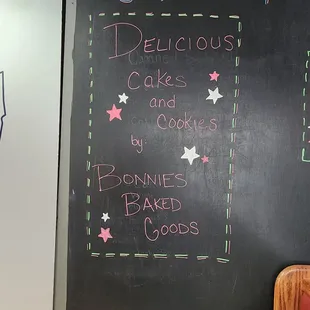 Delicious
Cakes
and
Cookies
by:
Bonnies
Baked
Goods